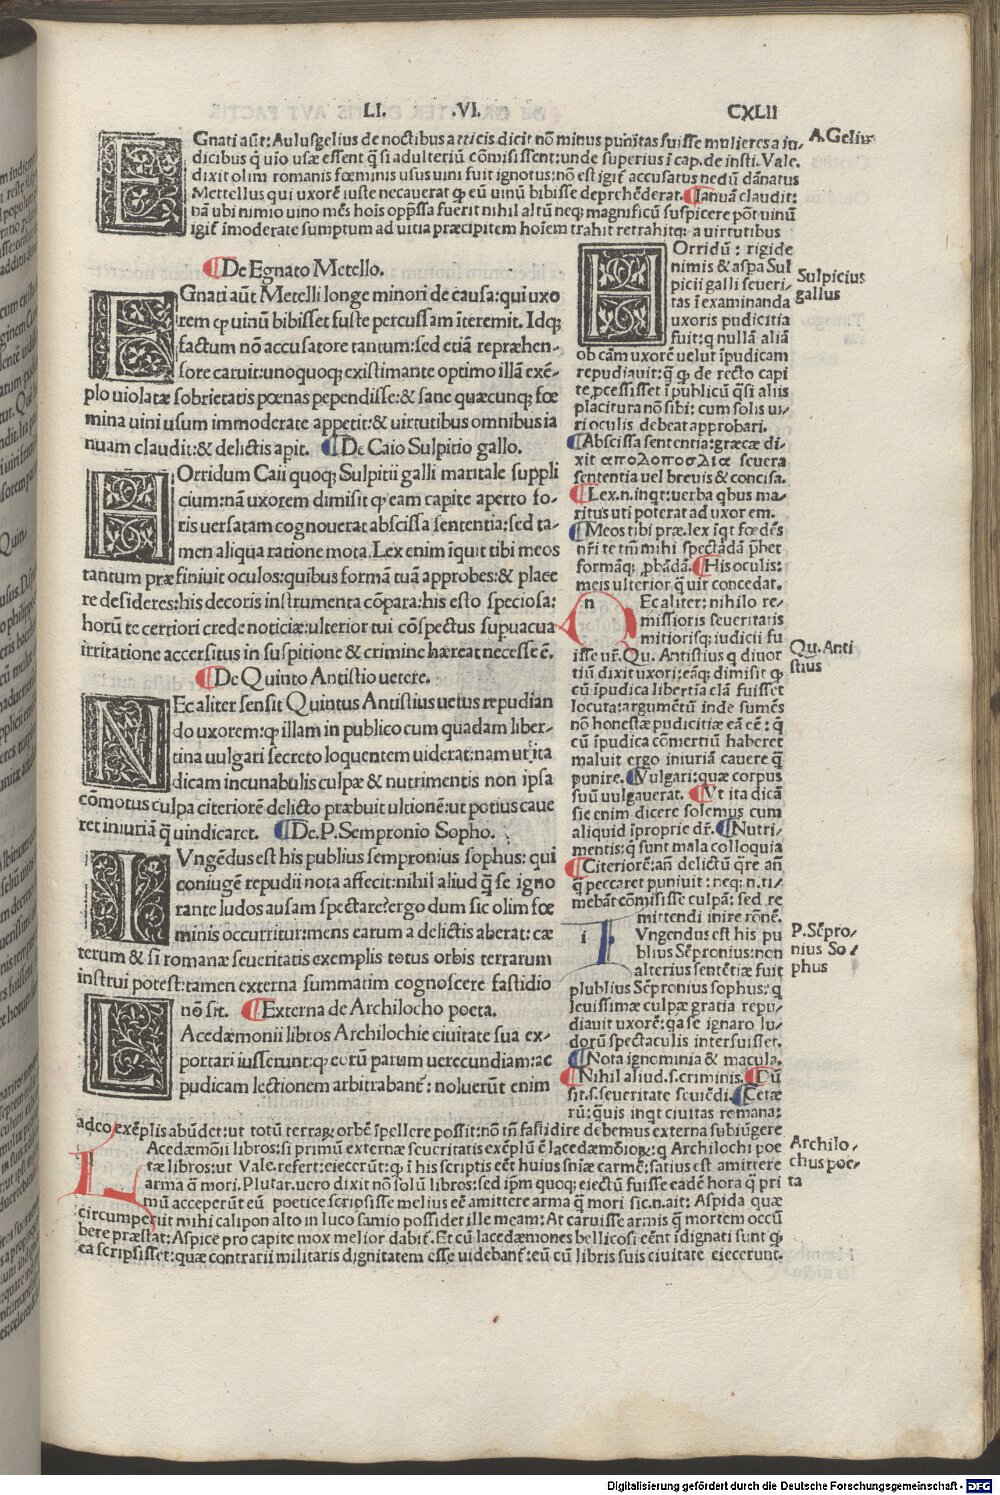 LI. .VI. CXLII
EGnati aūt: Aulusgelius de noctibus atticis dicit nō minus punitas fuisse mulieres a iu-
dicibus q̄ uio usæ essent q̄ si adulteriū cōmisissent: unde superius ī cap. de insti. Vale.
dixit olim romanis fœminis usus uini fuit ignotus: nō est igit̄ accusatus nedū dānatus
Mettellus qui uxorē iuste necauerat ꝙ eū uinū bibisse deprehēderat. Ianuā claudit:
nā ubi nimio uino mēs hois opp̄ssa fuerit nihil altū neq; magnificū suspicere pōt uinū
igit̄ īmoderate sumptum ad uitia præcipitem hoīem trahit retrahitq; a uirtutibus
A. Gelius
De Egnato Metello.
EGnati aūt Metelli longe minori de causa: qui uxo
rem ꝙ uinū bibisset fuste percussam īteremit. Idq;
factum nō accusatore tantum: sed etiā repræhen-
sore caruit: unoquoq; existimante optimo illā exē-
plo uiolatæ sobrietatis pœnas pependisse: & sane quæcunq; fœ
mina uini usum immoderate appetit: & uirtutibus omnibus ia
nuam claudit: & delictis apit. De Caio Sulpitio gallo.
HOrridum Caii quoq; Sulpitii galli maritale suppli
cium: nā uxorem dimisit ꝙ eam capite aperto fo-
ris uersatam cognouerat abscissa sententia: sed ta-
men aliqua ratione mota. Lex enim īquit tibi meos
tantum præfiniuit oculos: quibus formā tuā approbes: & place
re desideres: his decoris instrumenta cōpara: his esto speciosa:
horū te certiori crede noticiæ: ulterior tui cōspectus supuacua
irritatione accersitus in suspitione & crimine hæreat necesse ē.
De Quinto Antistio uetere.
NEc aliter sensit Quintus Antistius uetus repudian
do uxorem: ꝙ illam in publico cum quadam liber-
tina uulgari secreto loquentem uiderat: nam ut ita
dicam incunabulis culpæ & nutrimentis non ipsa
cōmotus culpa citeriorē delicto præbuit ultionē: ut potius caue
ret iniuriā q̄ uindicaret. De .P. Sempronio Sopho.
IVngēdus est his publius sempronius sophus: qui
coniugē repudii nota affecit: nihil aliud q̄ se igno
rante ludos ausam spectare: ergo dum sic olim fœ
minis occurritur: mens earum a delictis aberat: cæ
terum & si romanæ seueritatis exemplis totus orbis terrarum
instrui potest: tamen externa summatim cognoscere fastidio
nō sit. Externa de Archilocho poeta.
LAcedæmonii libros Archilochie ciuitate sua ex-
portari iusserunt: ꝙ eorū parum uerecundiam: ac
pudicam lectionem arbitrabant̄: noluerūt enim
HOrridū: rigide
nimis & aspa Sul
picii galli seueri-
tas ī examinanda
uxoris pudicitia
fuit: q nullā aliā
ob cām uxorē uelut īpudicam
repudiauit: q̄ ꝙ de recto capi
te pcessisset ī publicū q̄si aliis
placitura nō sibi: cum solis ui-
ri oculis debeat approbari.
Abscissa sententia: græcæ di-
xit απολοποσλια seuera
sententia uel breuis & concisa.
Lex.n.inqt: uerba qbus ma-
ritus uti poterat ad uxorem.
Meos tibi præ. lex īqt fœdēs
nr̄i te tm̄ mihi spectādā p̄bet
formāq; pbādā. His oculis:
meis ulterior q̄ uir concedat.
n NEc aliter: nihilo re-
missioris seueritatis
mitiorisq; iudicii fu
isse ur̄. Qu. Antistius q diuor
tiū dixit uxori: eāq; dimisit ꝙ
cū īpudica libertīa clā fuisset
locuta: argumētū inde sumēs
nō honestæ pudicitiæ eā cē: q̄
cū īpudica cōmertiū haberet
maluit ergo iniuriā cauere q̄
punire. Vulgari: quæ corpus
suū uulgauerat. Vt ita dicā
sic enim dicere solemus cum
aliquid īproprie dr̄. Nutri-
mentis: q̄ sunt mala colloquia
Citeriorē: an̄ delictū q̄re an̄
q̄ peccaret puniuit: neq; .n. ti-
mebāt cōmisisse culpā: sed re
mittendi inire rōnē.
i IVngendus est his pu
blius Sēpronius: non
alterius sentētiæ fuit
plublius Sēpronius sophus: q
leuissimæ culpæ gratia repu-
diauit uxorē: q a se ignaro lu-
dorū spectaculis interfuisset.
Nota ignominia & macula.
Nihil aliud .s. criminis. Dū
sit .s. seueritate seuiēdi. Cetæ
rū: q̄uis inqt ciuitas romana:
Sulpicius
gallus
Qu. Anti
stius
P. Sēpro-
nius So
phus
adeo exēplis abūdet: ut totū terraꝝ orbē īpellere possit: nō tn̄ fastidire debemus externa subiūgere
LAcedæmōii libros: si primū externæ seueritatis exēplū ē lacedæmōioꝝ: q Archilochi poe
tæ libros: ut Vale. refert: eiecerūt: ꝙ ī his scriptis eēt huius sn̄iæ carmē: satius est amittere
arma q̄ mori. Plutar. uero dixit nō solū libros: sed ip̄m quoq; eiectū fuisse eadē hora q̄ pri
mū acceperūt eū poetice scripsisse melius eē amittere arma q̄ mori sic .n. ait: Aspida quæ
circumperuit mihi calipon alto in luco samio possidet ille meam: At caruisse armis q̄ mortem occū
bere præstat: Aspice pro capite mox melior dabit̄. Et cū lacedæmones bellicosi cēnt īdignati sunt ꝙ
ea scripsisset: quæ contrarii militaris dignitatem esse uidebant̄: eū cū libris suis ciuitate eiecerunt.
Archilo-
chus poe-
ta
Digitalisierung gefördert durch die Deutsche Forschungsgemeinschaft - DFG